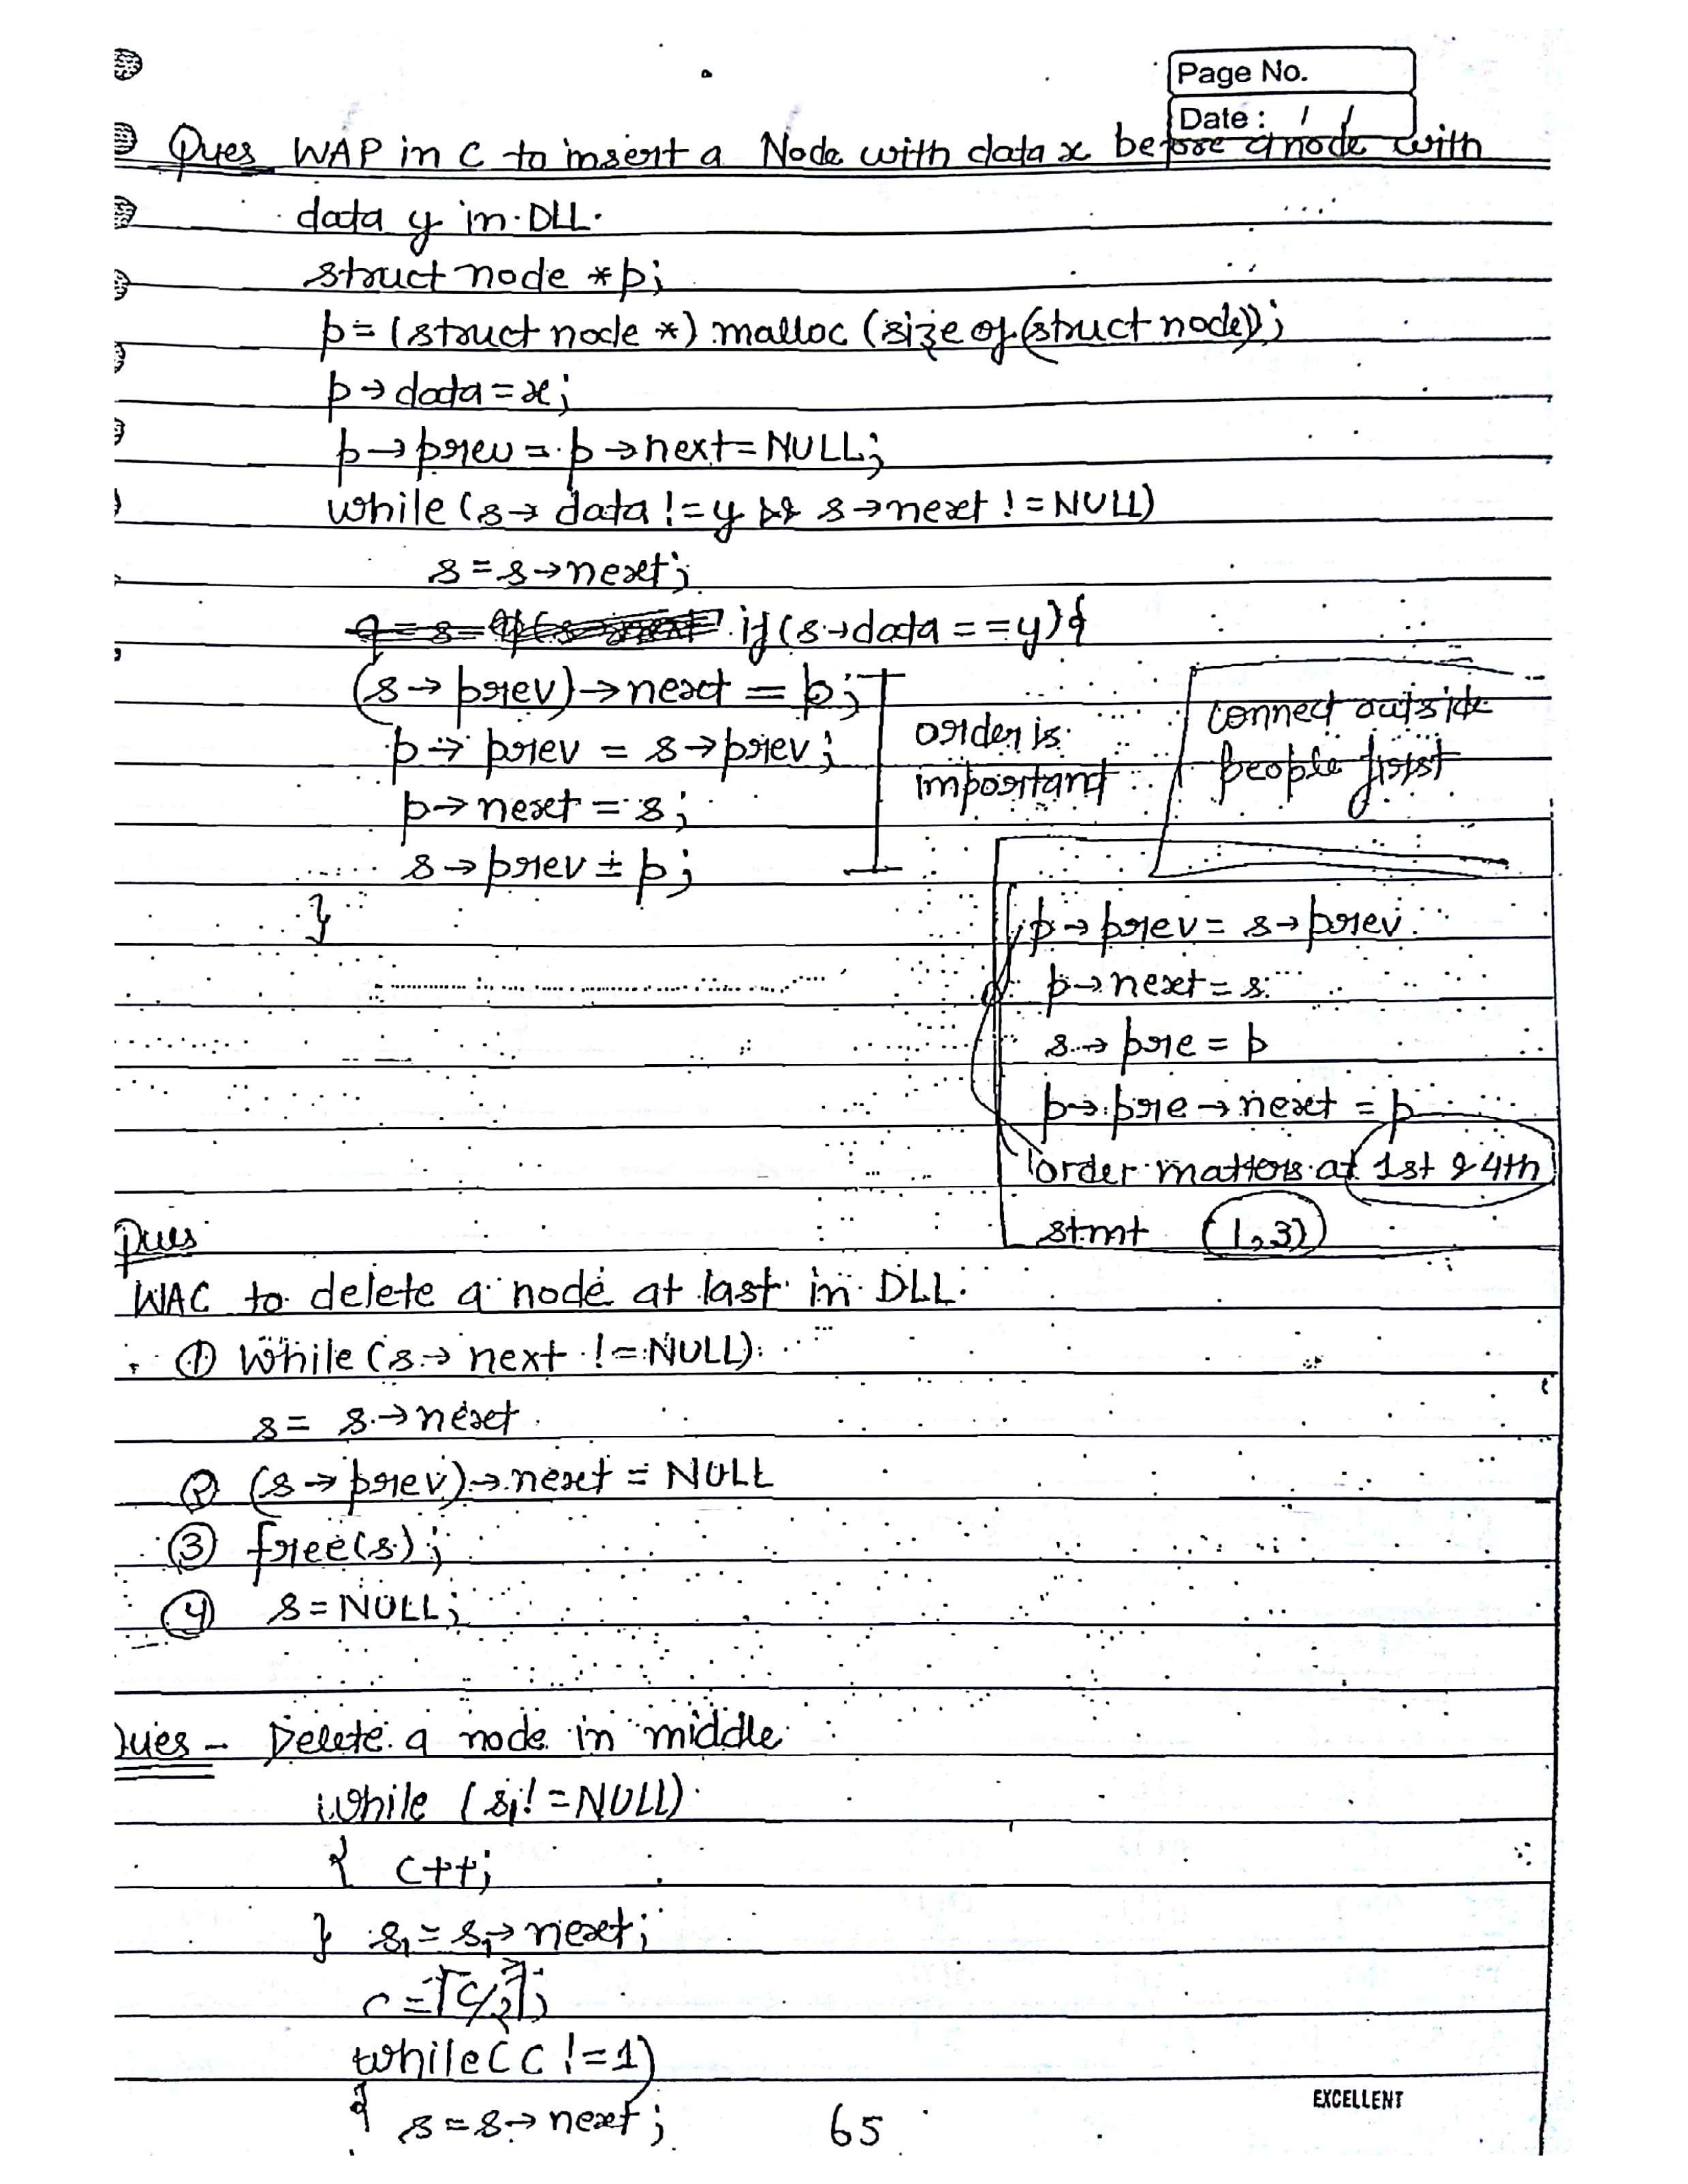 Page No.
Date : / /
Ques WAP in C to insert a Node with data x before a node with
data y in DLL.
struct node *p;
p = (struct node *) malloc (size of (struct node));
p → data = x;
p → prev = p → next = NULL;
while (s → data != y && s → next != NULL)
s = s → next;
if (s → data == y) {
(s → prev) → next = p;
p → prev = s → prev;
p → next = s;
s → prev = p;
}
order is
important
connect outside
people first
p → prev = s → prev
p → next = s
s → pre = p
p → pre → next = p
order matters at 1st & 4th
stmt (1,3)
Ques
WAC to delete a node at last in DLL.
① While (s → next != NULL)
s = s → next
② (s → prev) → next = NULL
③ free(s);
④ s = NULL;
Ques - Delete a node in middle
while (s₁ != NULL)
{ c++;
} s₁ = s₁ → next;
c = ⌈c/2⌉;
while (c != 1)
{ s = s → next;
65
EXCELLENT